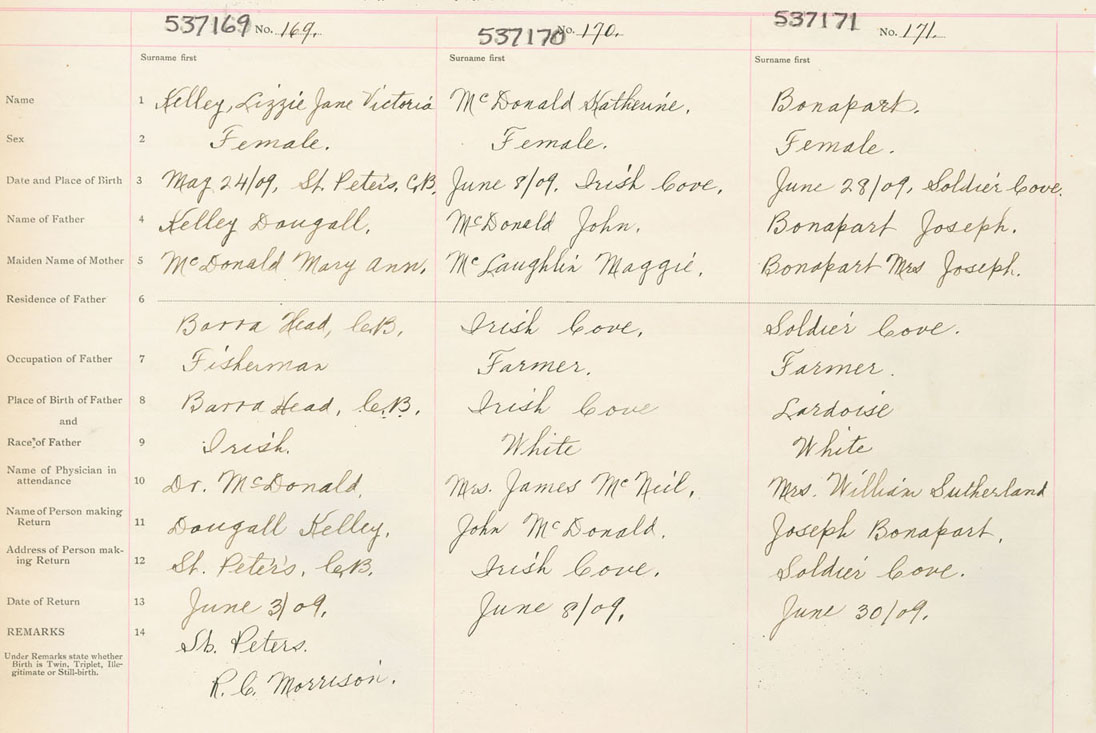 537169 No. 169. 537170 No. 170. 537171 No. 171.
Surname first Surname first Surname first
Name 1 Kelley, Lizzie Jane Victoria McDonald Katherine. Bonapart.
Sex 2 Female. Female. Female.
Date and Place of Birth 3 May 24/09, St. Peter's, C.B. June 8/09. Irish Cove. June 28/09, Soldier Cove.
Name of Father 4 Kelley Dougall. McDonald John. Bonapart Joseph.
Maiden Name of Mother 5 McDonald Mary Ann. McLaughlin Maggie. Bonapart Mrs Joseph.
Residence of Father 6
Barra Head, C.B. Irish Cove. Soldier Cove.
Occupation of Father 7 Fisherman Farmer. Farmer.
Place of Birth of Father 8 Barra Head, C.B. Irish Cove Lardoise
and
Race of Father 9 Irish. White White
Name of Physician in
attendance 10 Dr. McDonald Mrs. James McNeil. Mrs. William Sutherland
Name of Person making
Return 11 Dougall Kelley. John McDonald. Joseph Bonapart.
Address of Person mak-
ing Return 12 St. Peter's, C.B. Irish Cove. Soldier Cove.
Date of Return 13 June 3/09. June 8/09. June 30/09.
REMARKS 14 St. Peters.
Under Remarks state whether
Birth is Twin, Triplet, Ille-
gitimate or Still-birth.
R. C. Morrison.